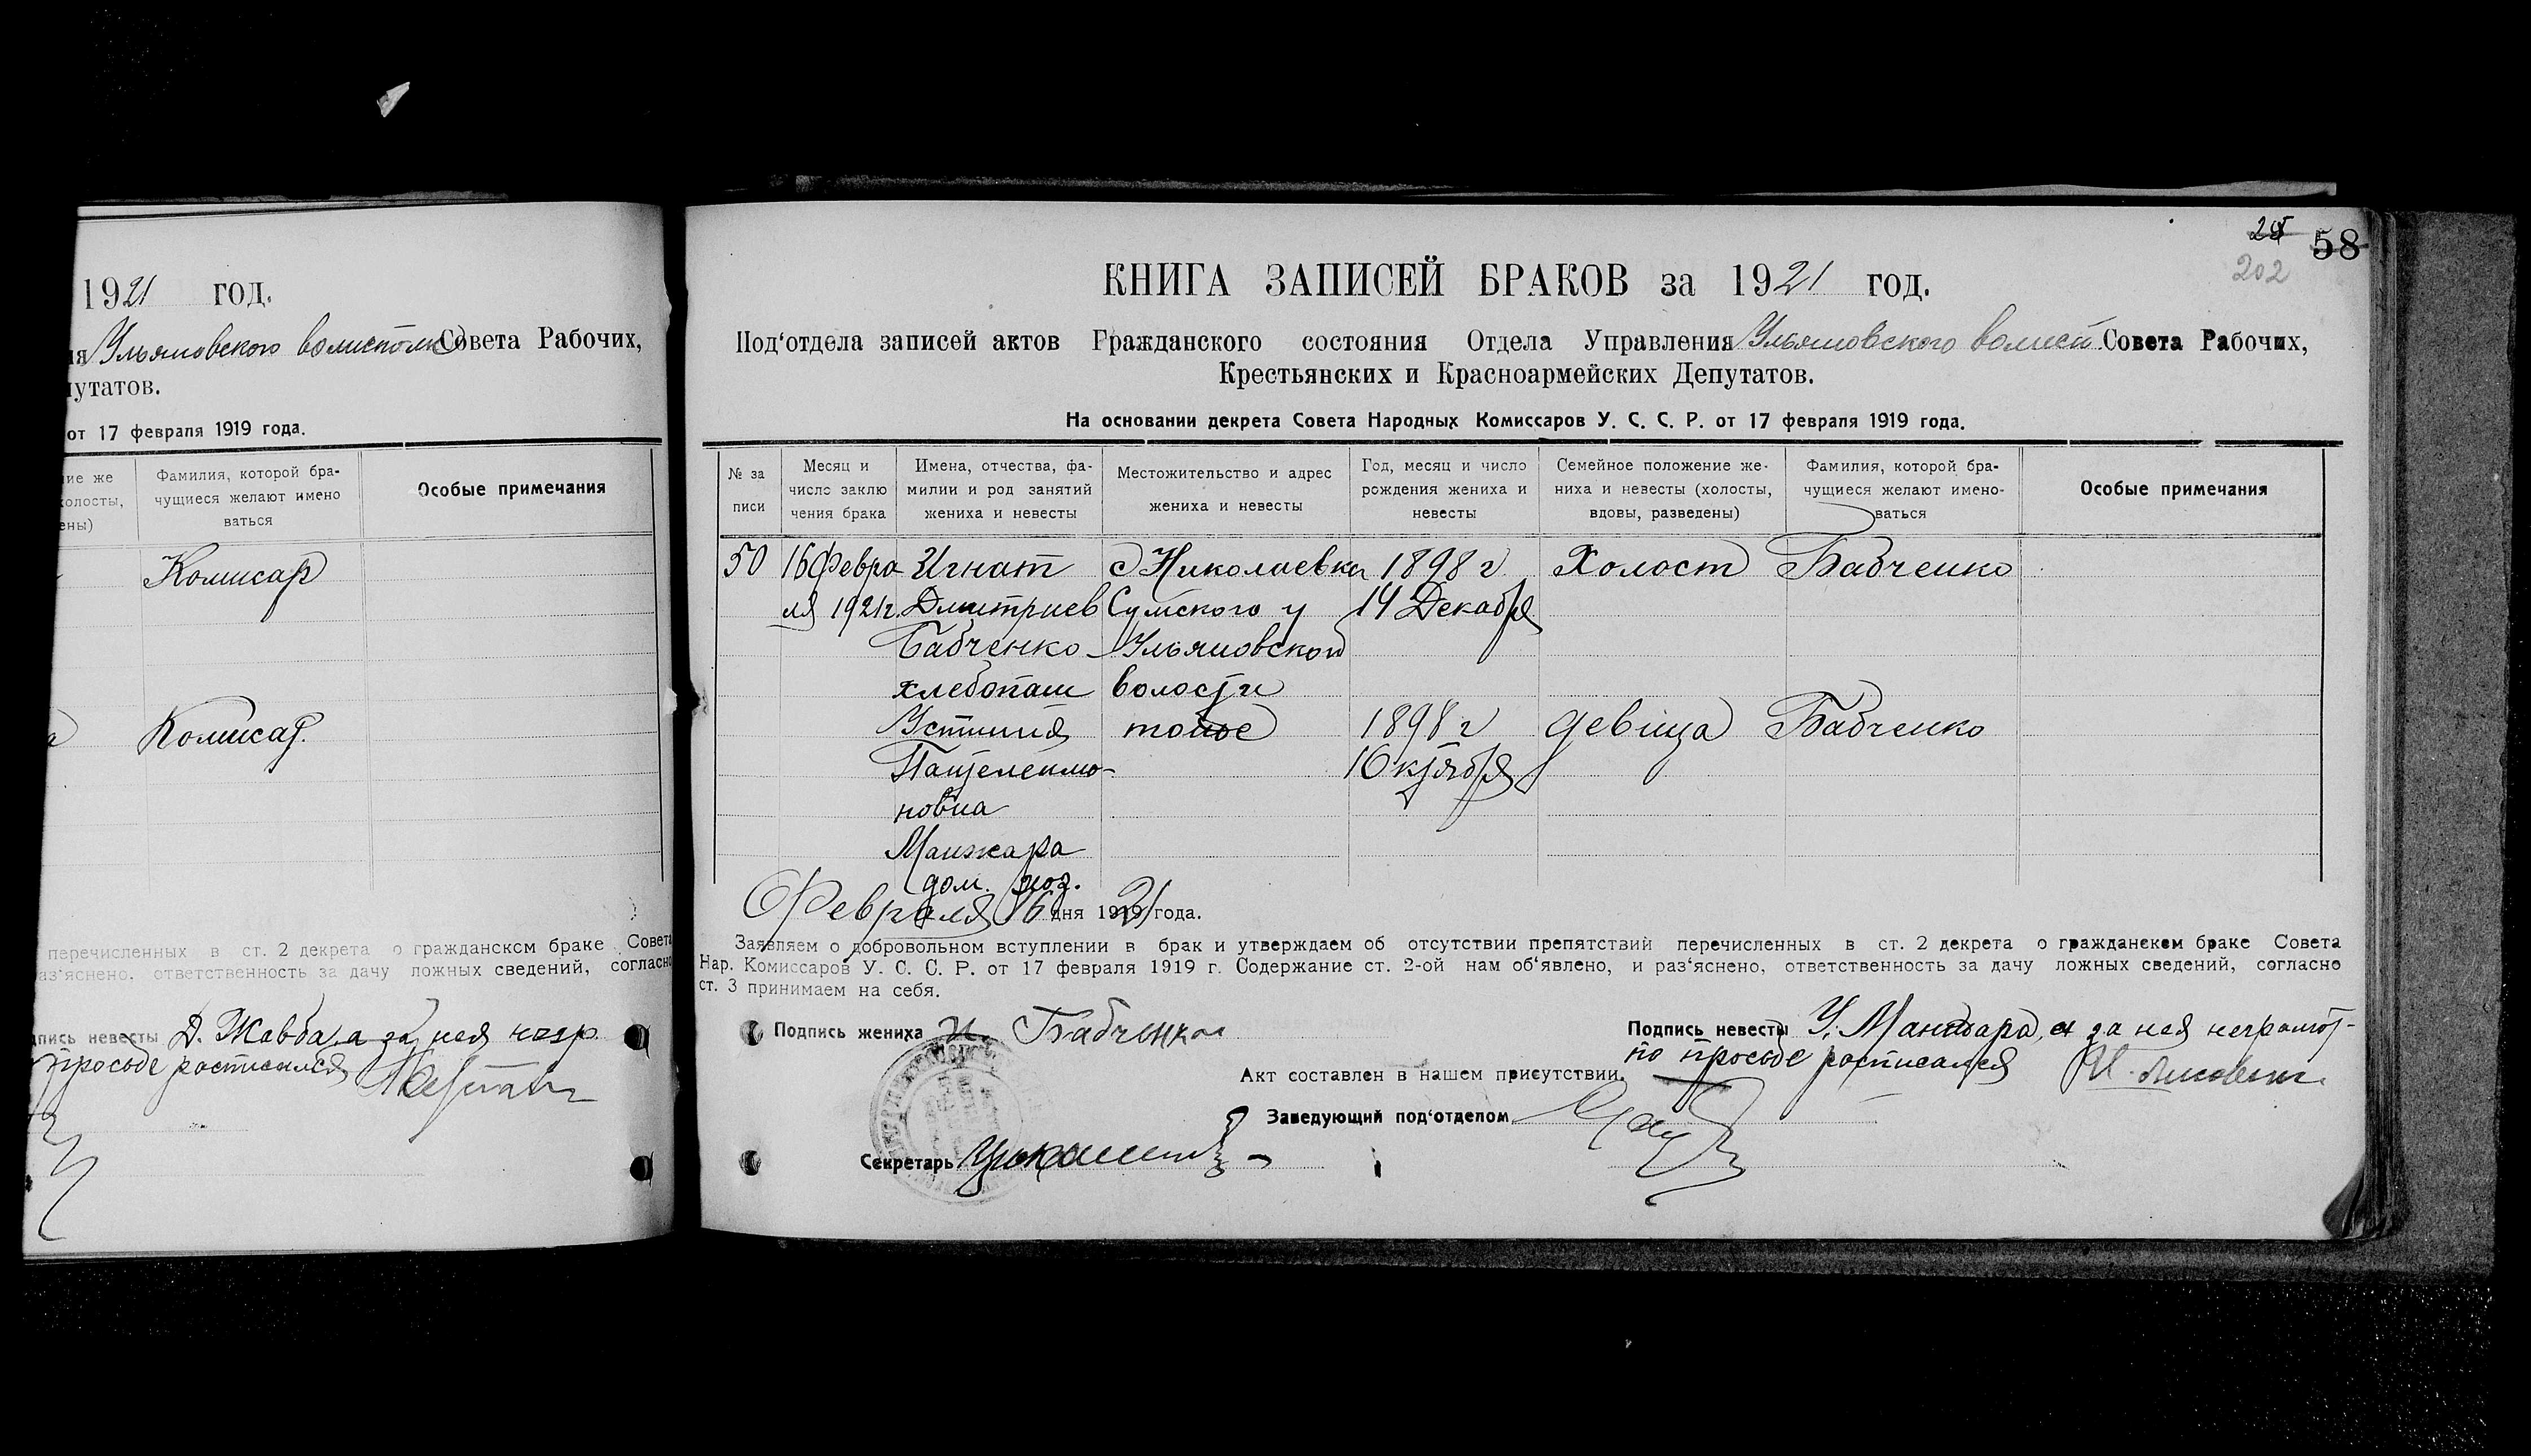 1921 год.
Ульяновского волисполк Совета Рабочих,
путатов.
от 17 февраля 1919 года.
Фамилия, которой бра-
чущиеся желают имено
ваться
Особые примечания
Комисар
Комисар.
перечисленных в ст. 2 декрета о гражданском браке Совета
раз‘яснено, ответственность за дачу ложных сведений, согласно
невесты Д. Жавба, а за нея негр.
просьбе росписался
25 58
202
КНИГА ЗАПИСЕЙ БРАКОВ за 1921 год.
Под‘отдела записей актов Гражданского состояния Отдела Управления Ульяновского волисп. Совета Рабочих,
Крестьянских и Красноармейских Депутатов.
На основании декрета Совета Народных Комиссаров У. С. С. Р. от 17 февраля 1919 года.
№ за
писи
Месяц и
число заклю
чения брака
Имена, отчества, фа-
милии и род занятий
жениха и невесты
Местожительство и адрес
жениха и невесты
Год, месяц и число
рождения жениха и
невесты
Семейное положение же-
ниха и невесты (холосты,
вдовы, разведены)
Фамилия, которой бра-
чущиеся желают имено-
ваться
Особые примечания
50 16 Февра Игнат с Николаевка 1898 г Холост Бабченко
ля 1921г. Дмитриев Сумского у 14 Декабря
Бабченко Ульяновской
хлебопаш волости
Устиния тоже 1898 г девица Бабченко
Пантелеимо- 1 Октября
новна
Манжара
дом. хоз.
Февраля 16 дня 1921 года.
Заявляем о добровольном вступлении в брак и утверждаем об отсутствии препятствий перечисленных в ст. 2 декрета о гражданском браке Совета
Нар. Комиссаров У. С. С. Р. от 17 февраля 1919 г. Содержание ст. 2-ой нам об‘явлено, и раз‘яснено, ответственность за дачу ложных сведений, согласно
ст. 3 принимаем на себя.
Подпись жениха И. Бабченко
Подпись невесты У. Манжара, а за нея неграмот-
по просьбе росписался
Акт составлен в нашем присутствии.
Заведующий под‘отделом
Секретарь